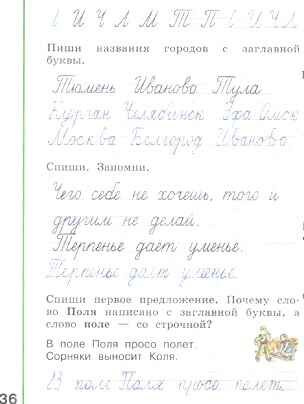 І И Ч А М Т П І И Ч А
Пиши названия городов с заглавной
буквы.
Тюмень Иваново Тула
Курган Челябинск Уха Омск
Москва Белгород Иваново
Спиши. Запомни.
Чего себе не хочешь, того и
другим не делай.
Терпенье даёт уменье.
Терпенье даёт уменье.
Спиши первое предложение. Почему сло-
во Поля написано с заглавной буквы, а
слово поле — со строчной?
В поле Поля просо полет.
Сорняки выносит Коля.
В поле Поля просо полет.
36